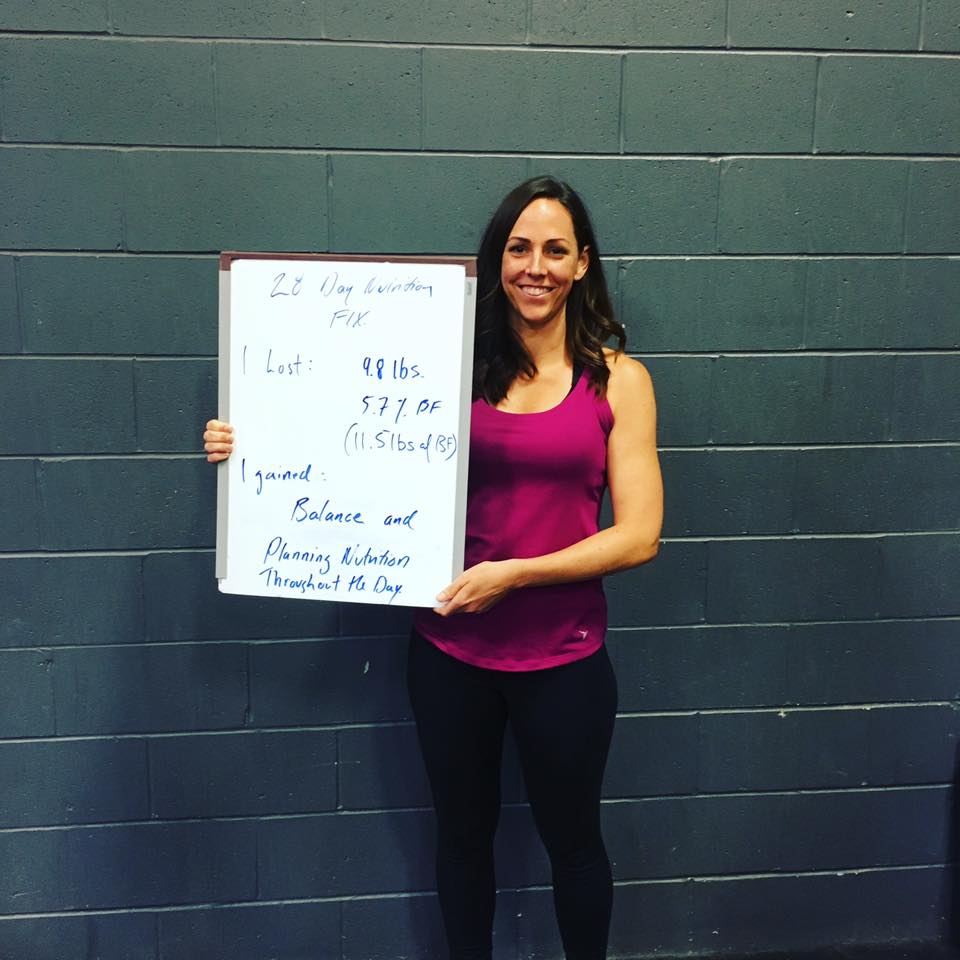 28 Day Nutrition
FIX.
I Lost: 9.8 lbs.
5.7% BF
(11.5 lbs of BF)
I gained:
Balance and
Planning Nutrition
Throughout the Day.